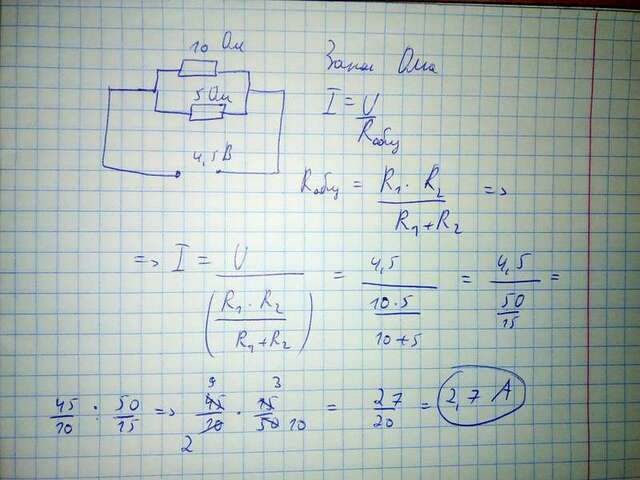 10 Ом
5 Ом
4,5 В
Закон Ома
I = U / Rобщ
Rобщ = R₁ · R₂ / R₁ + R₂ =>
=> I = U / (R₁ · R₂ / R₁ + R₂) = 4,5 / 10 · 5 / 10 + 5 = 4,5 / 50 / 15 =
45/10 : 50/15 => 45/10 · 15/50 = 27/20 = 2,7 А
9 3
2 10